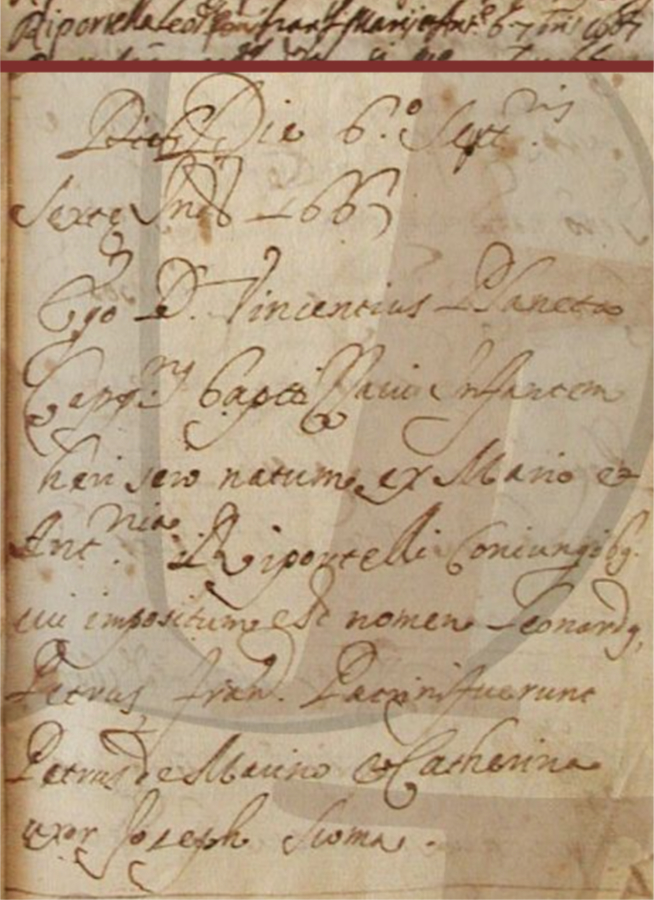 Riportella
Die 6.º Sept.ris
Sexte Ind. 1667
Ego D. Vincentius Planeta
Capp.nus baptizavi infantem
heri sero natum, ex Mario et
Ant.nia Riportelli Coniungibq.
cui impositum est nomen Leonardq,
Petrus, Fran. Patrini fuerunt
Petrus de Maurino & Catherina
uxor Joseph Sioma.